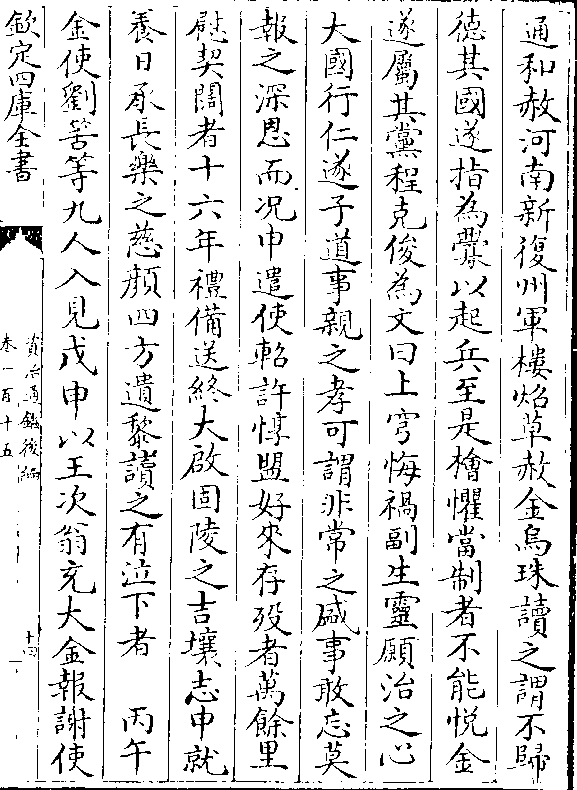 通和赦河南新復州軍樓炤草赦金烏珠讀之謂不歸
德其國遂指為釁以起兵至是檜懼當制者不能悅金
遂屬其黨程克俊為文曰上穹悔禍副生靈願治之心
大國行仁遂子道事親之孝可謂非常之盛事敢忘莫
報之深恩而况申遣使軺許惇盟好來存殁者萬餘里
慰契闊者十六年禮備送終大啟固陵之吉壤志申就
養日承長樂之慈顔四方遺黎讀之有泣下者　丙午
金使劉筈等九人入見戊申以王次翁充大金報謝使
欽定四庫全書
資治通鑑後編
卷一百十五
十四